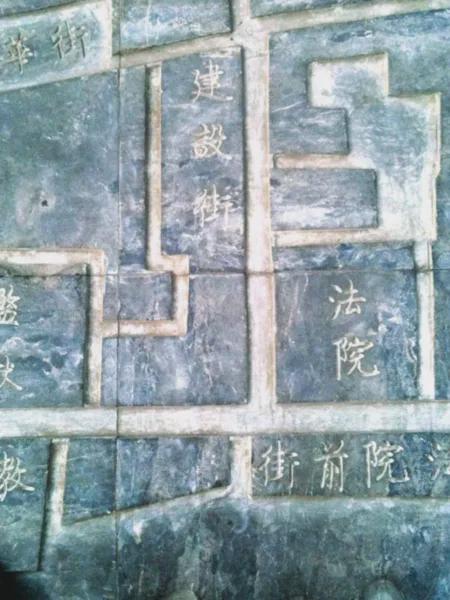 華街
建設街
法院
法院前街
監
教